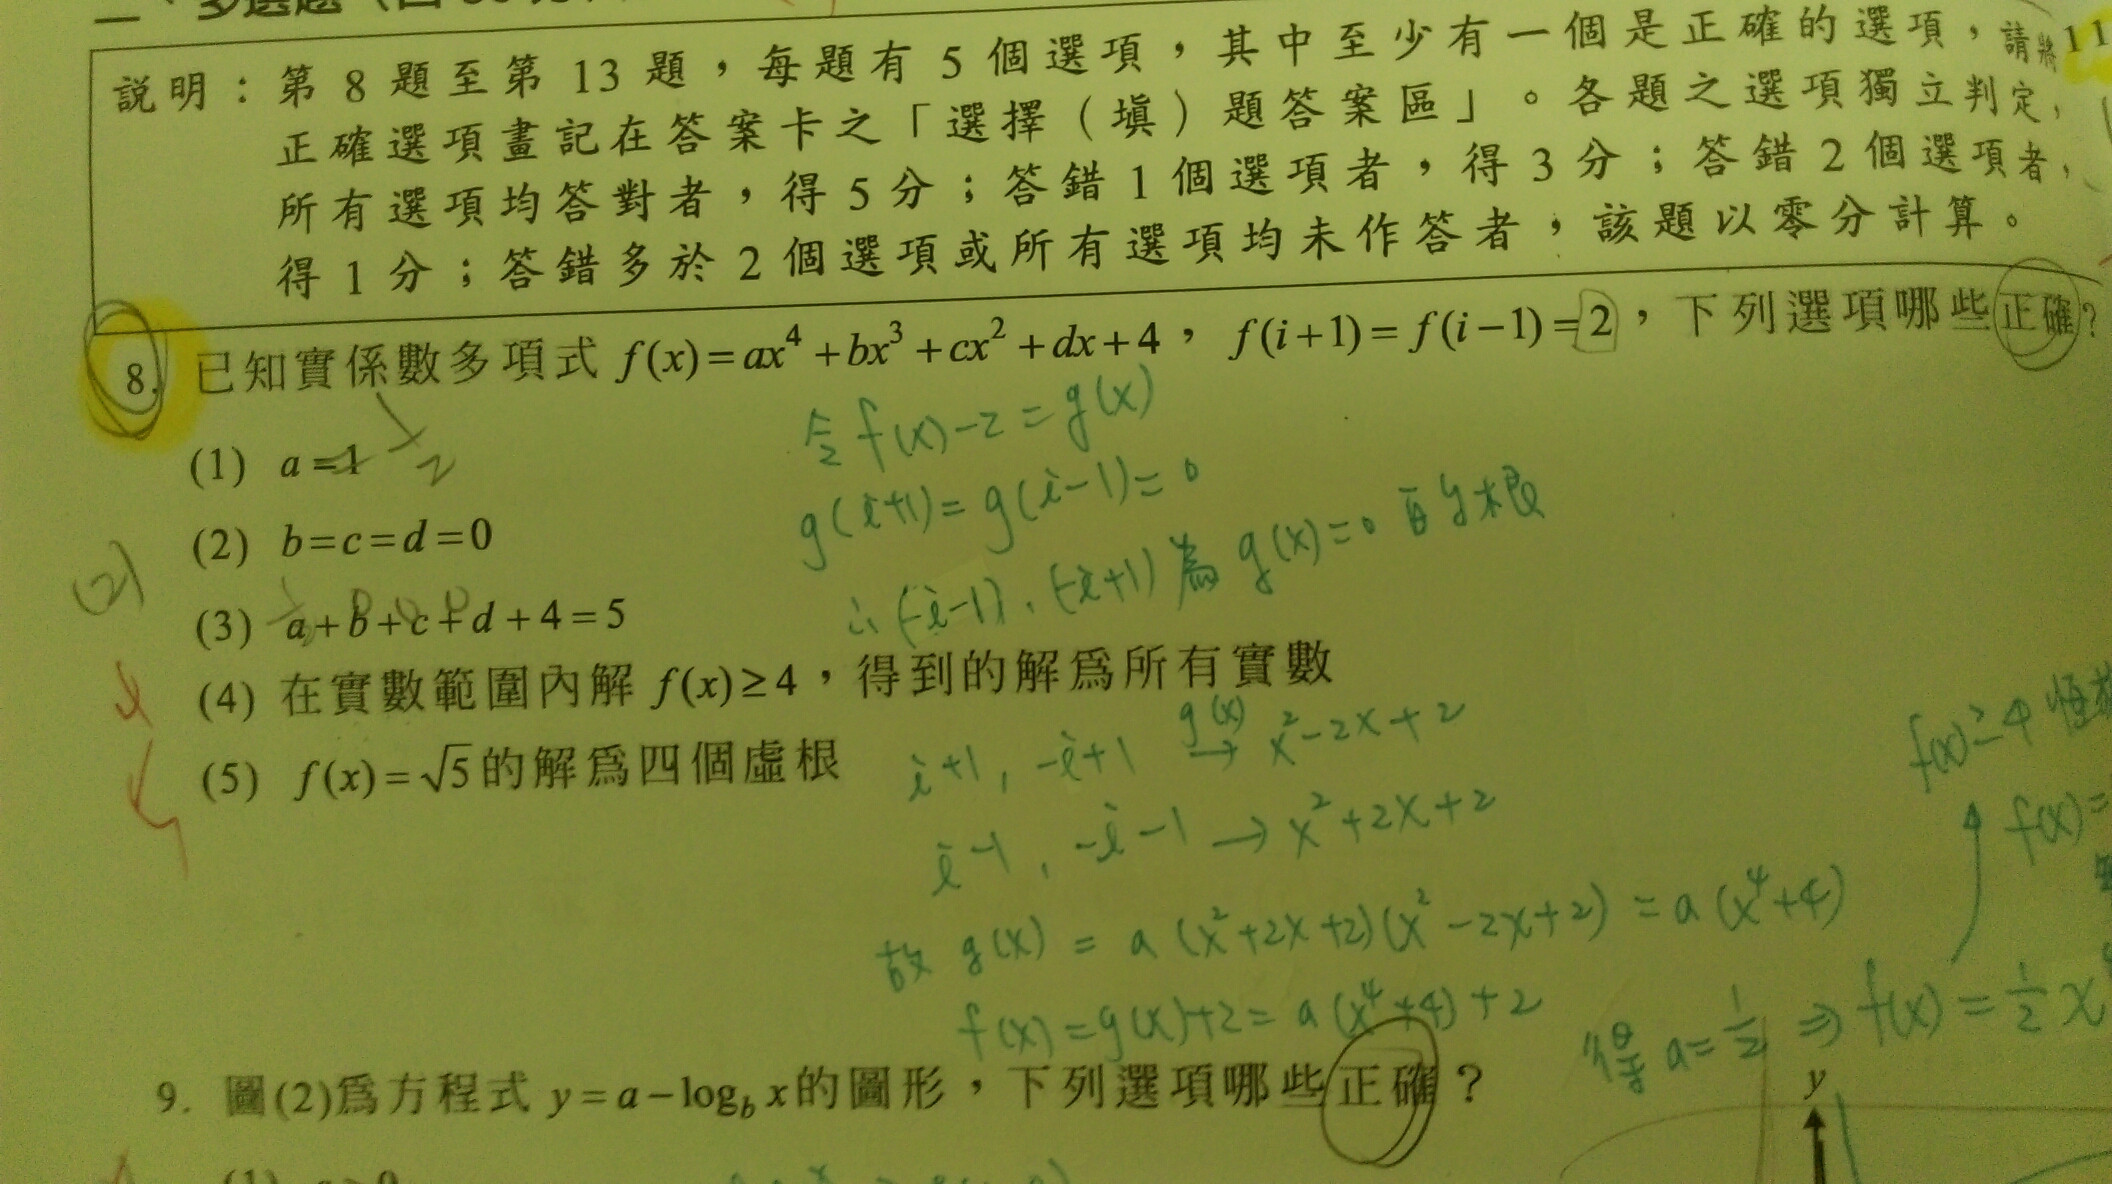 二、多選題
11
說明：第 8 題至第 13 題，每題有 5 個選項，其中至少有一個是正確的選項，請將
正確選項畫記在答案卡之「選擇（填）題答案區」。各題之選項獨立判定，
所有選項均答對者，得 5 分；答錯 1 個選項者，得 3 分；答錯 2 個選項者，
得 1 分；答錯多於 2 個選項或所有選項均未作答者，該題以零分計算。
8. 已知實係數多項式 f(x)=ax⁴+bx³+cx²+dx+4，f(i+1)=f(i−1)=2，下列選項哪些正確？
令 f(x)-2=g(x)
(1) a=1
1/2
g(i+1)=g(i-1)=0
(2) b=c=d=0
∴(-i-1)、(-i+1)為 g(x)=0 的根
(2)
(3) a+b+c+d+4=5
(4) 在實數範圍內解 f(x)≥4，得到的解爲所有實數
(5) f(x)=√5的解爲四個虛根
i+1, -i+1 g(x)→ x²-2x+2
f(x)≥4 恆
i-1, -i-1 → x²+2x+2
f(x)=
故 g(x) = a (x²+2x+2)(x²-2x+2) = a(x⁴+4)
f(x)=g(x)+2= a(x⁴+4)+2
得 a=1/2 ⇒ f(x)=1/2 x
9. 圖(2)爲方程式 y=a−log_b x的圖形，下列選項哪些正確？
y